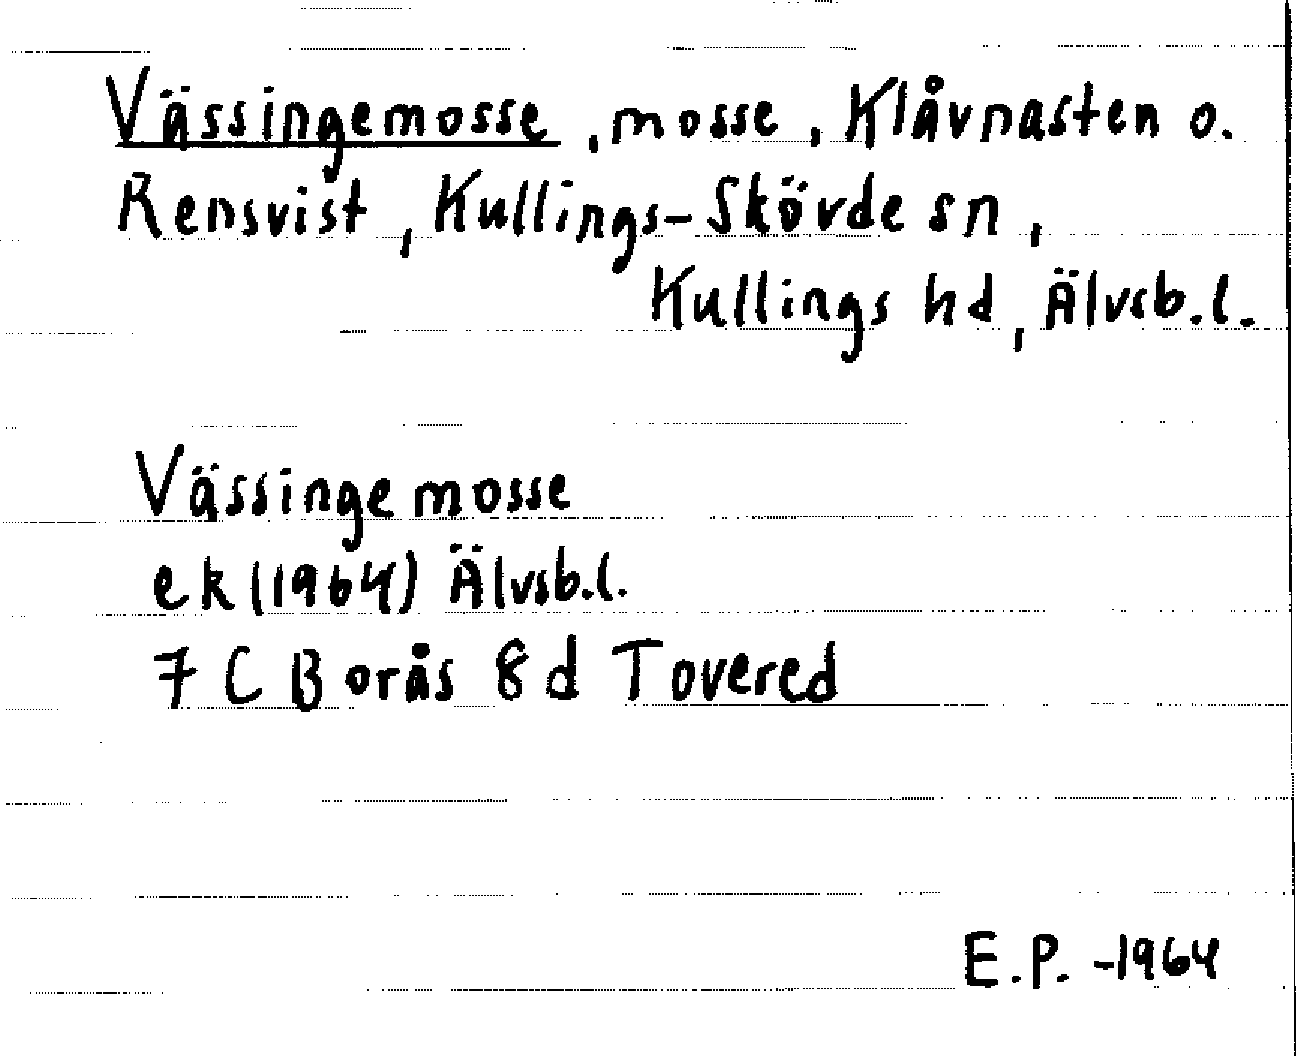 Vässingemosse, mosse, Klåvnasten o.
Rensvist, Kullings-Skövde sn,
Kullings hd, Älvsb.l.
Vässinge mosse
ek (1964) Älvsb.l.
7 C Borås 8 d Tovered
E.P. -1964